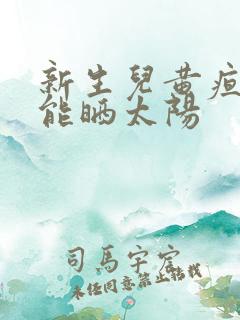 新生兒黃疸
能晒太陽
司馬宇宏
未经同意禁止转载